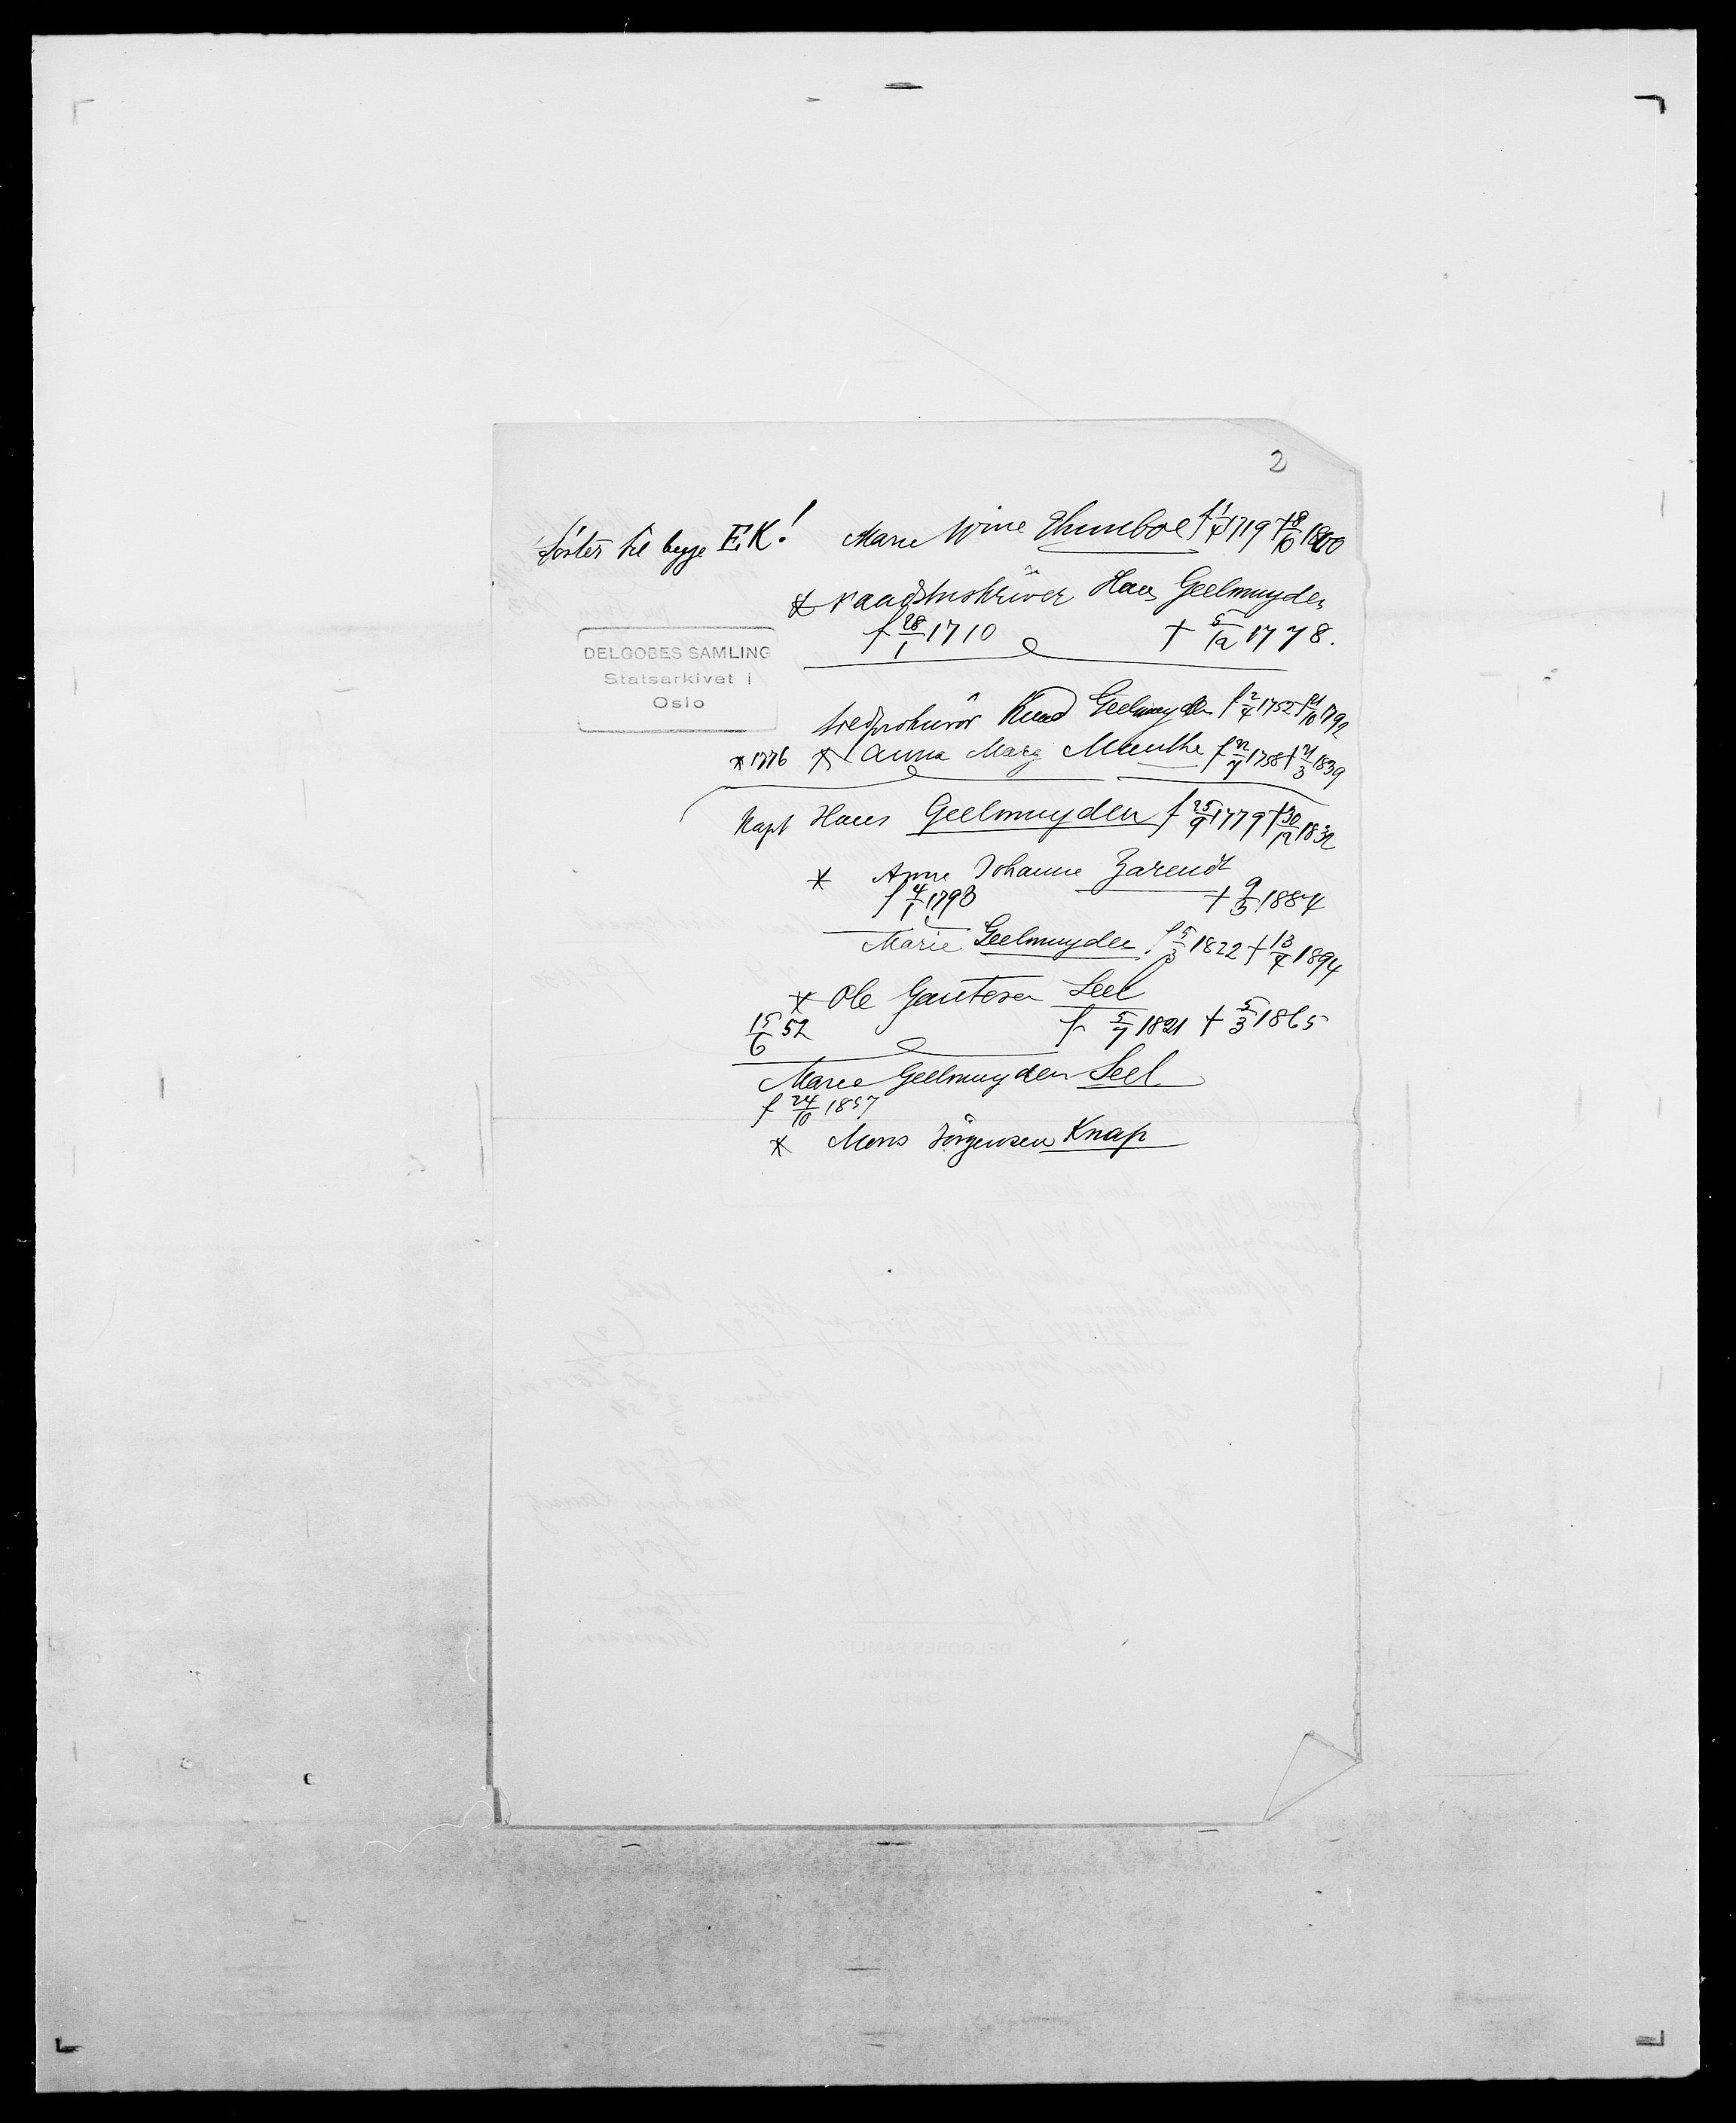 2
Søster til begge E.K! Marie Wine Thumboe f 1/4 1719 † 8/10 1800
* raadstuskriver Hans Geelmuyden
f 28/1 1710 † 5/12 1778.
DELGOBES SAMLING
Statsarkivet i
Oslo
Knud Geelmuyden f 2/4 1752 † 21/10 1792
* 1776 * Anna Marg Munthe f 22/7 1758 † 21/3 1839
Kapt Hans Geelmuyden f 25/9 1779 † 30/12 1832
* Anne Johanne Barendt
f 4/1 1793 † 9/3 1884
Marie Geelmuyden f 5/3 1822 † 13/4 1894
* Ole Gautesen Seel
15/6 52 f 5/7 1821 † 5/3 1865
Marie Geelmuyden Seel
f 24/10 1857
* Mons Jörgensen Knap